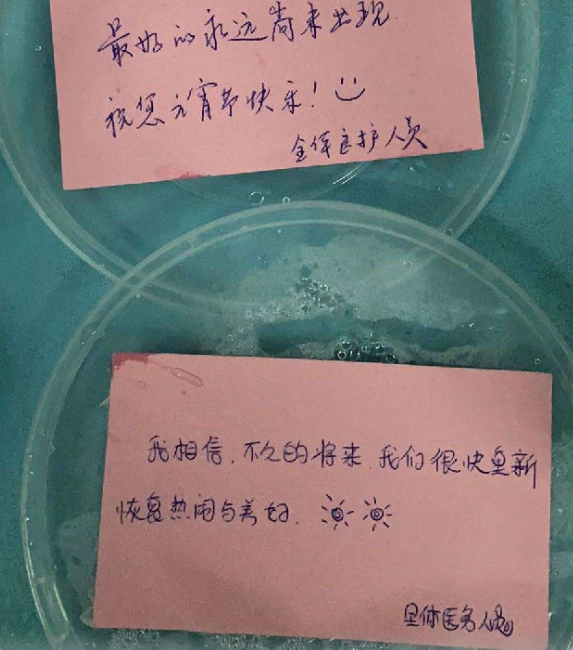 最好的永远尚未出现
祝您元宵节快乐!
全体医护人员
我相信,不久的将来,我们很快重新
恢复热闹与美好.
全体医务人员